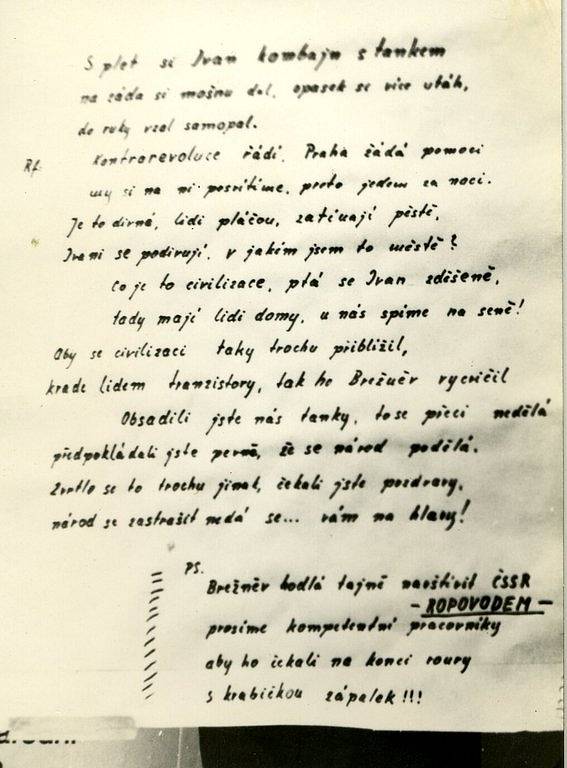 Splet si Ivan kombajn s tankem
na záda si mošnu dal, opasek se více utáh,
do ruky vzal samopal.
Rf. Kontrarevoluce řádí, Praha žádá pomoci
my si na ni posvítíme, proto jedem za noci.
Je to divná, lidi pláčou, zatínají pěstě,
Ivani se podivují, v jakém jsem to městě?
Co je to civilizace, ptá se Ivan zdišeně,
tady mají lidi domy, u nás spíme na seně!
Aby se civilizaci taky trochu přiblížil,
krade lidem tranzistory, tak ho Brežněv vycvičil
Obsadili jste nás tanky, to se přeci nedělá
předpokládali jste pevně, že se národ podělá.
Zvrtlo se to trochu jinak, čekali jste pozdravy,
národ se zastrašit nedá se... vám na hlavy!
PS.
Brežněv hodlá tajně navštívit ČSSR
- ROPOVODEM -
prosíme kompetentní pracovníky
aby ho čekali na konci roury
s krabičkou zápalek!!!